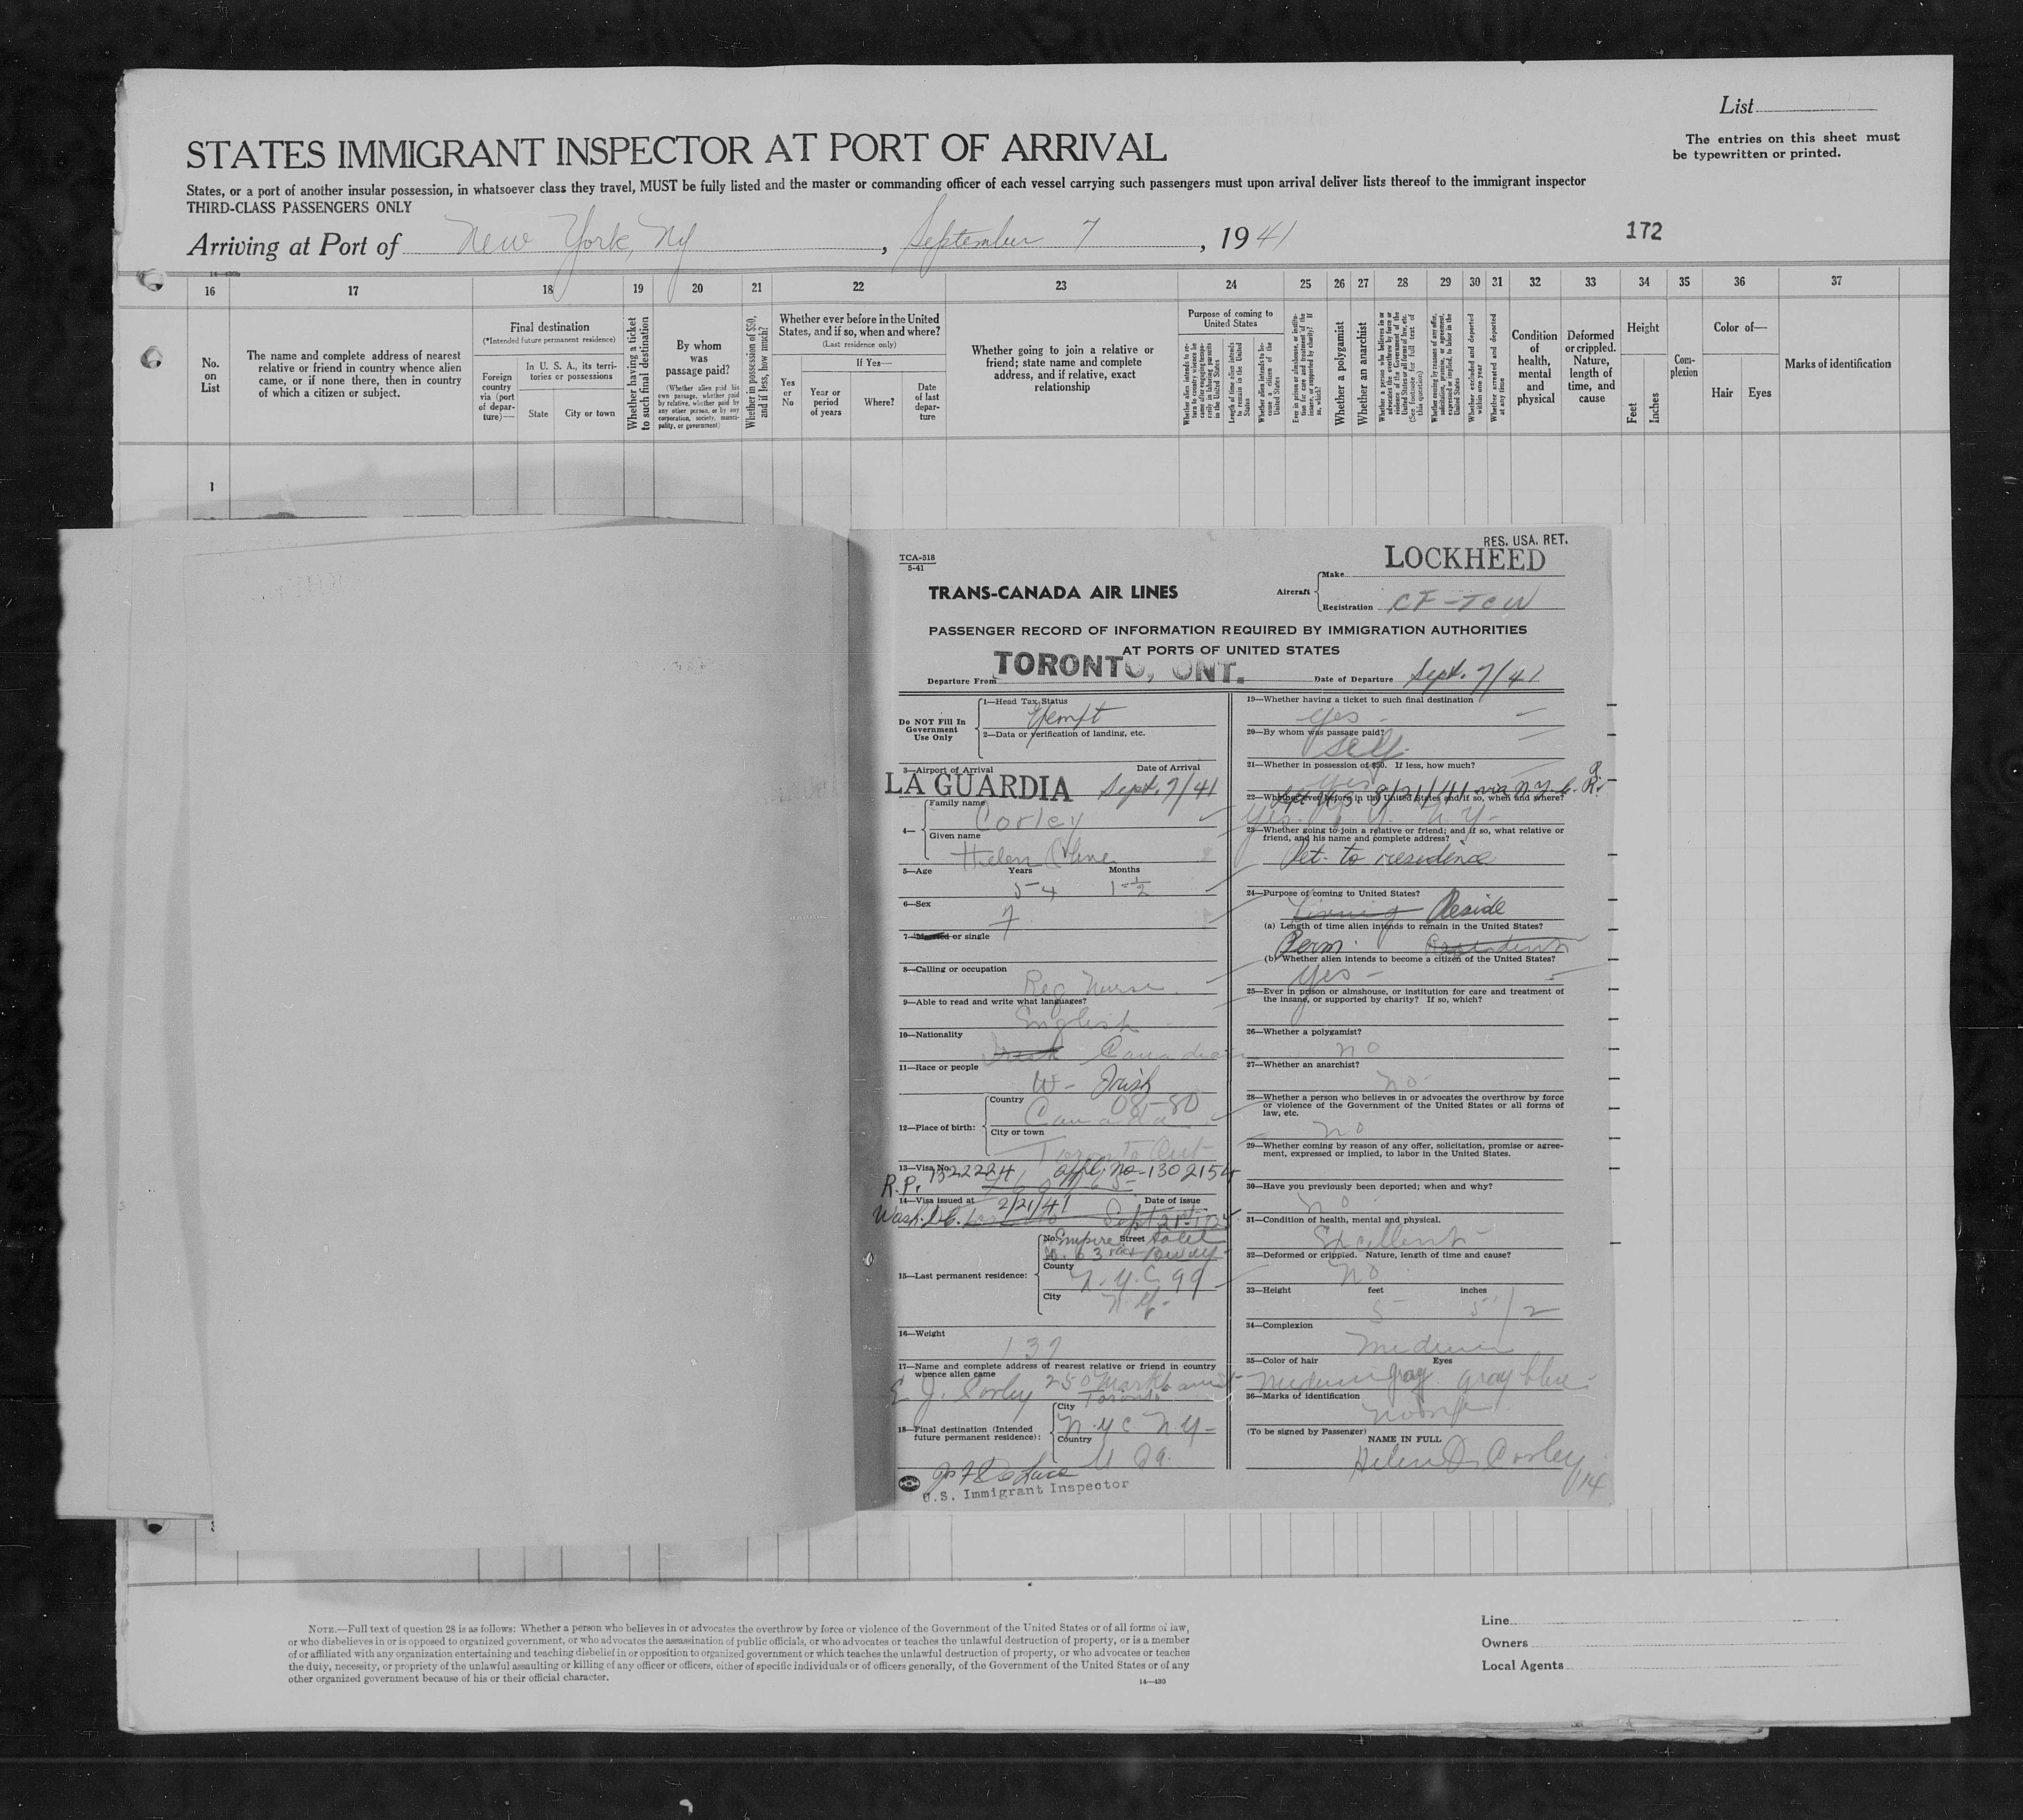 List
The entries on this sheet must
be typewritten or printed.
STATES IMMIGRANT INSPECTOR AT PORT OF ARRIVAL
States, or a port of another insular possession, in whatsoever class they travel, MUST be fully listed and the master or commanding officer of each vessel carrying such passengers must upon arrival deliver lists thereof to the immigrant inspector
THIRD-CLASS PASSENGERS ONLY
Arriving at Port of New York, Ny, September 7, 1941
172
14—430b
16 17 18 19 20 21 22 23 24 25 26 27 28 29 30 31 32 33 34 35 36 37
No. on List
The name and complete address of nearest
relative or friend in country whence alien
came, or if none there, then in country
of which a citizen or subject.
Final destination
(*Intended future permanent residence)
Foreign country via (port of departure)—
In U. S. A., its territories or possessions
State City or town
Whether having a ticket to such final destination
By whom was passage paid?
(Whether alien paid his own passage, whether paid by relative, whether paid by any other person, or by any corporation, society, municipality, or government)
Whether in possession of $50, and if less, how much?
Whether ever before in the United
States, and if so, when and where?
(Last residence only)
Yes or No
If Yes—
Year or period of years
Where?
Date of last departure
Whether going to join a relative or
friend; state name and complete
address, and if relative, exact
relationship
Purpose of coming to
United States
Length of time alien intends to remain in the United States
Whether alien intends to become a citizen of the United States
Whether a polygamist
Whether an anarchist
(See footnote for full text of this question)
Whether excluded and deported within one year
Whether arrested and deported at any time
Condition of health, mental and physical
Deformed or crippled. Nature, length of time, and cause
Height
Feet Inches
Complexion
Color of—
Hair Eyes
Marks of identification
1
TCA-518
5-41
RES. USA. RET.
TRANS-CANADA AIR LINES
Aircraft
Make LOCKHEED
Registration CF-TCW
PASSENGER RECORD OF INFORMATION REQUIRED BY IMMIGRATION AUTHORITIES
AT PORTS OF UNITED STATES
Departure From TORONTO, ONT.
Date of Departure Sept. 7/41
Do NOT Fill In
Government
Use Only
1—Head Tax Status
Exempt
2—Data or verification of landing, etc.
3—Airport of Arrival Date of Arrival
LA GUARDIA Sept. 7/41
4—
Family name
Corley
Given name
Helen
5—Age Years Months
54 1-½
6—Sex
7
7—Married or single
8—Calling or occupation
Reg Nurse
9—Able to read and write what languages?
English
10—Nationality
Canadian
11—Race or people
W- Irish
12—Place of birth:
Country 08-80
Canada
City or town
Toronto Ont
13—Visa No.
R.P. 1322224 appl. no-1302154
14—Visa issued at Date of issue
Wash. D.C. 2/21/41
15—Last permanent residence:
No. Street
Empire Hotel
W. 63 rd Bway
County
N.Y.C. 99
City
N.Y.
16—Weight
137
17—Name and complete address of nearest relative or friend in country
whence alien came
E. J. Corley 250 Markham St
Toronto
18—Final destination (Intended
future permanent residence):
City
N.Y.C N.Y-
Country
U Sa.
U.S. Immigrant Inspector
19—Whether having a ticket to such final destination
yes -
20—By whom was passage paid?
Self.
21—Whether in possession of $50. If less, how much?
yes
22—Whether ever before in the United States and if so, when and where?
Yes. N.Y.
23—Whether going to join a relative or friend; and if so, what relative or
friend, and his name and complete address?
Ret. to residence
24—Purpose of coming to United States?
Living Reside
(a) Length of time alien intends to remain in the United States?
Perm.
(b) Whether alien intends to become a citizen of the United States?
Yes -
25—Ever in prison or almshouse, or institution for care and treatment of
the insane, or supported by charity? If so, which?
26—Whether a polygamist?
no
27—Whether an anarchist?
no-
28—Whether a person who believes in or advocates the overthrow by force
or violence of the Government of the United States or all forms of
law, etc.
no
29—Whether coming by reason of any offer, solicitation, promise or agree-
ment, expressed or implied, to labor in the United States.
30—Have you previously been deported; when and why?
no
31—Condition of health, mental and physical.
Excellent
32—Deformed or crippled. Nature, length of time and cause?
no
33—Height feet inches
5 5 1/2
34—Complexion
Medium
35—Color of hair Eyes
Medium gray gray blue
36—Marks of identification
none
(To be signed by Passenger)
NAME IN FULL
Helen O. Corley
114
NOTE.—Full text of question 28 is as follows: Whether a person who believes in or advocates the overthrow by force or violence of the Government of the United States or of all forms of law,
or who disbelieves in or is opposed to organized government, or who advocates the assassination of public officials, or who advocates or teaches the unlawful destruction of property, or is a member
of or affiliated with any organization entertaining and teaching disbelief in or opposition to organized government or which teaches the unlawful destruction of property, or who advocates or teaches
the duty, necessity, or propriety of the unlawful assaulting or killing of any officer or officers, either of specific individuals or of officers generally, of the Government of the United States or of any
other organized government because of his or their official character.
14—430
Line
Owners
Local Agents